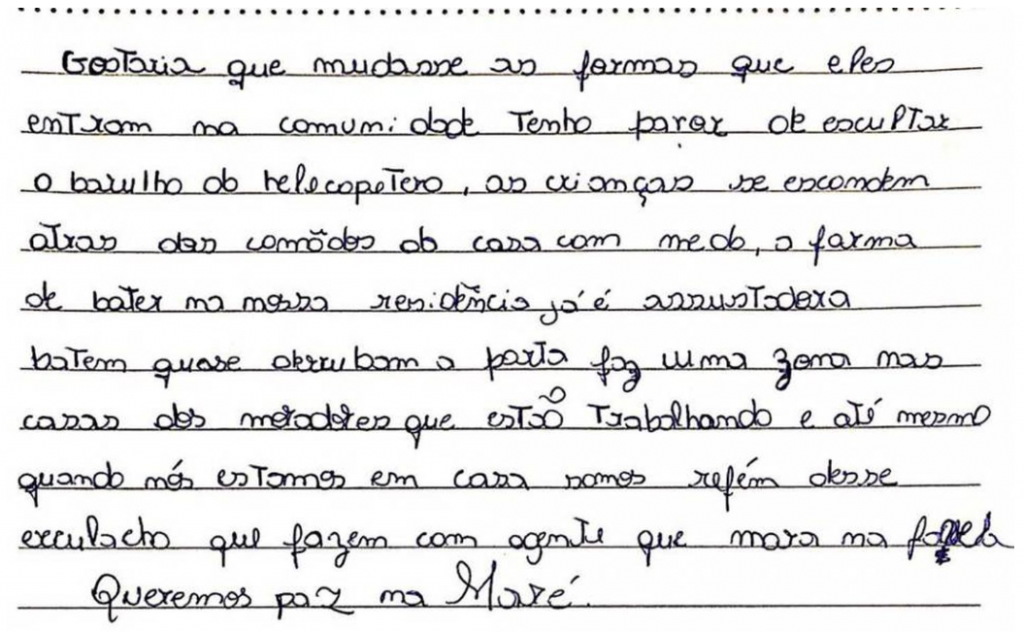 Gostaria que mudasse as formas que eles
entram na comunidade Tenho pavor de escultar
o barulho do helecopetero, as crianças se escondem
atras das comôdos da casa com medo, a forma
de bater na nossa residência já é assustadora
batem quase derrubam a porta faz uma zona nas
casas dos moradores que estão Trabalhando e até mesmo
quando nós estamos em casa somos refém desse
exculacho que fazem com agente que mora na favela
Queremos paz na Maré.